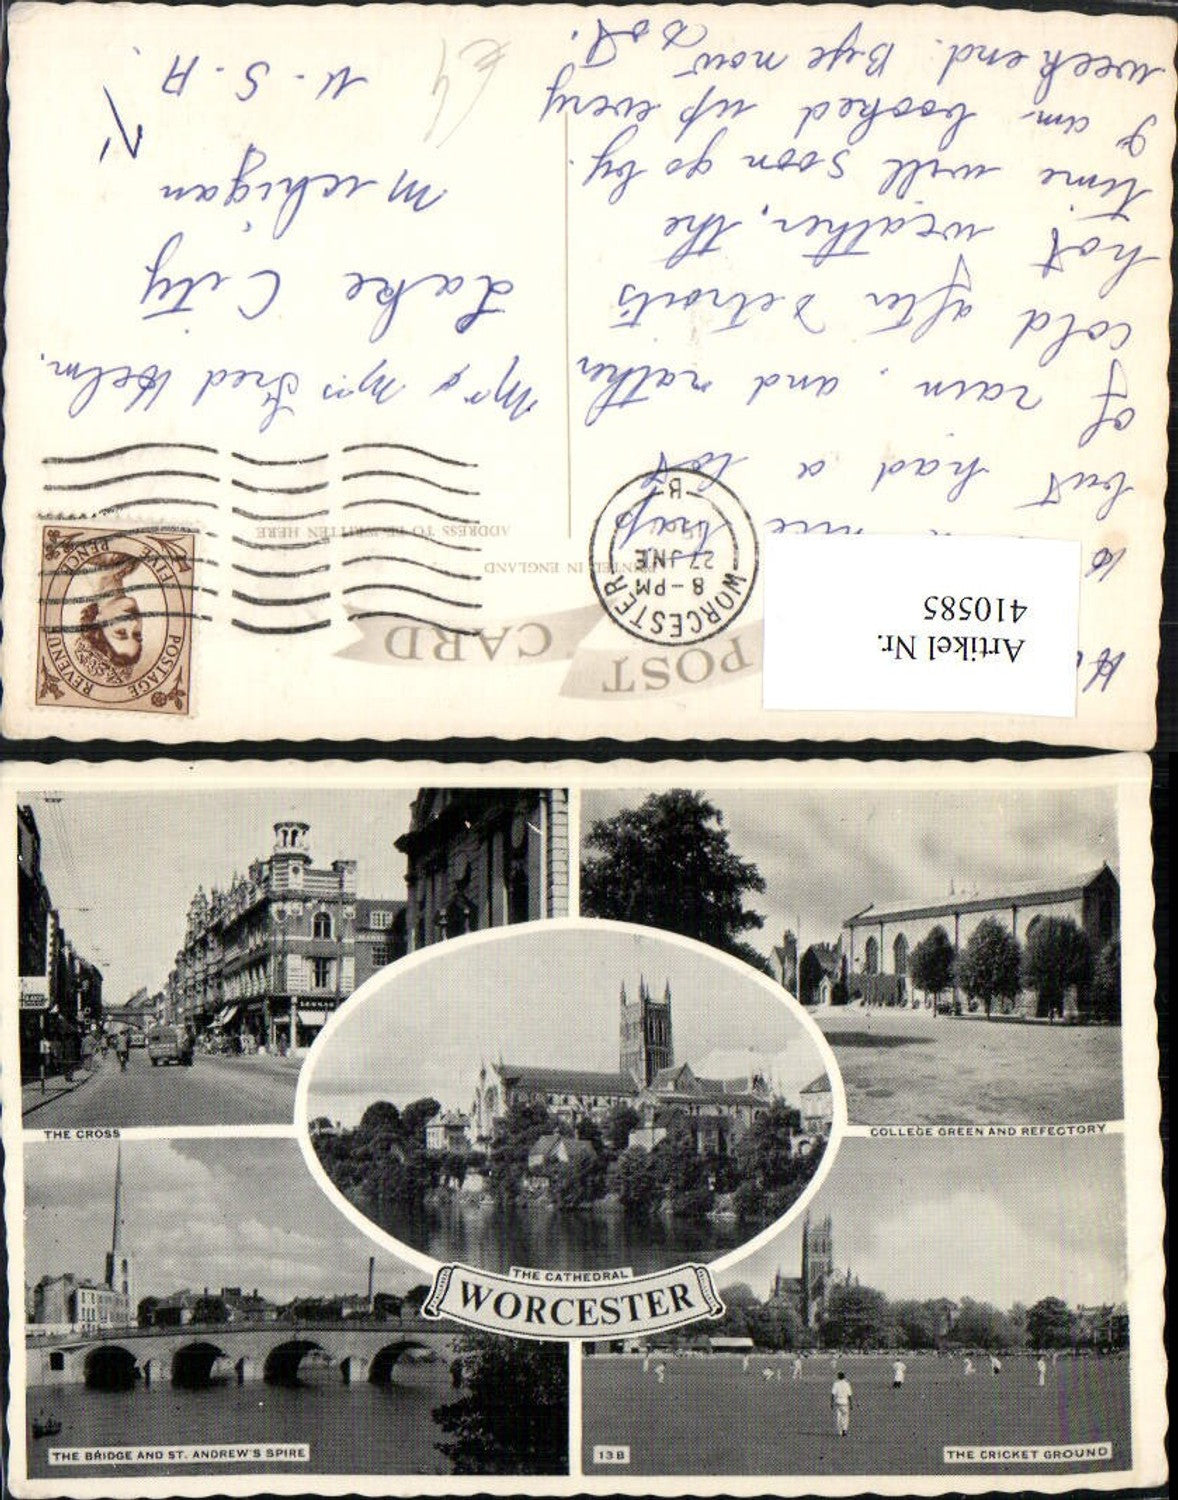 POST CARD
PRINTED IN ENGLAND
ADDRESS TO BE WRITTEN HERE
Artikel Nr.
410585
WORCESTER
8-PM
27 JNE
B
POSTAGE
REVENUE
FIVE PENCE
nice trip
but had a lot
of rain, and rather
cold after Detroits
hot weather, the
time will soon go by.
I am booked up every
week end. Bye now
Dot.
Mr & Mrs Fred Helm.
Lake City
Michigan
U.S.A.
THE CROSS
COLLEGE GREEN AND REFECTORY
THE CATHEDRAL
WORCESTER
THE BRIDGE AND ST. ANDREW'S SPIRE
13B
THE CRICKET GROUND